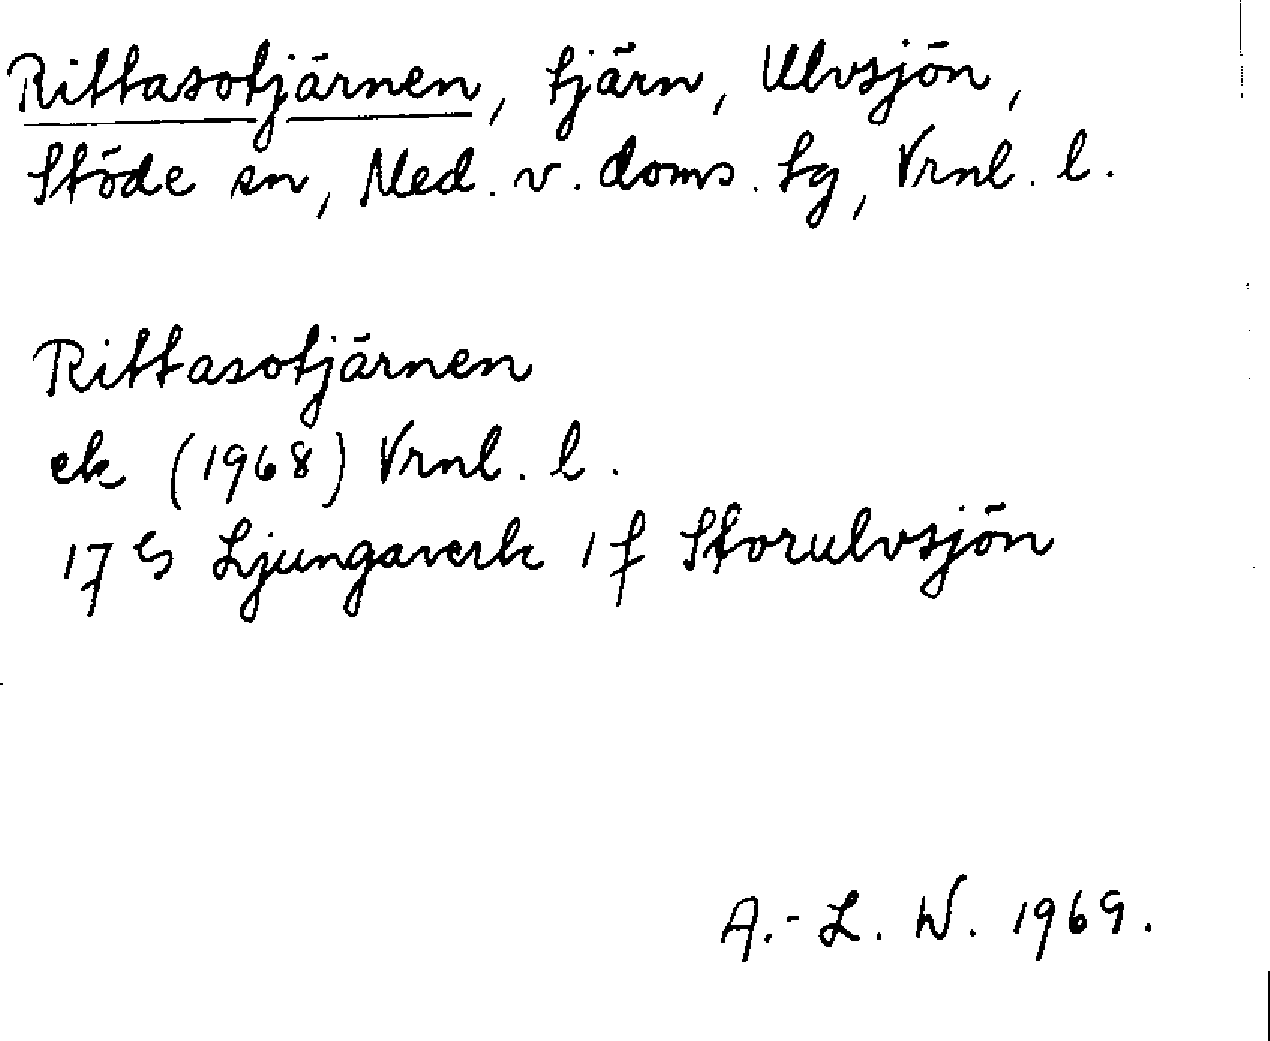 Rittasotjärnen, tjärn, Ulvsjön,
Stöde sn, Med. v. doms. tg, Vrnl. l.
Rittasotjärnen
ek (1968) Vrnl. l.
17 G Ljungaverk 1 f Storulvsjön
A.-L. W. 1969.